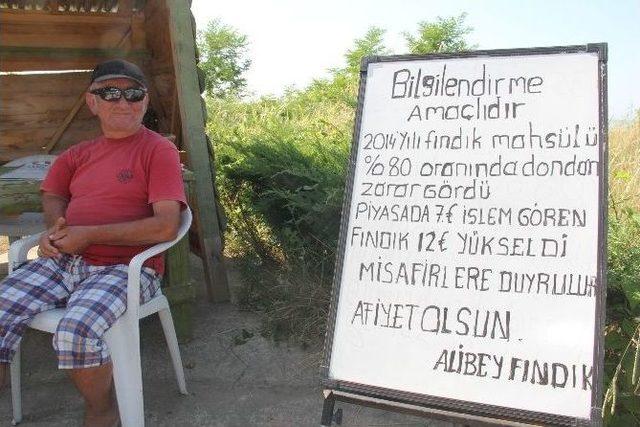 Bilgilendirme
Amaçlıdır
2014 Yılı fındık mahsülü
%80 oranında dondan
zarar gördü
PİYASADA 7€ İSLEM GÖREN
FINDIK 12€ YÜKSELDİ
MİSAFİRLERE DUYRULUR
AFİYET OLSUN.
ALİBEY FINDIK